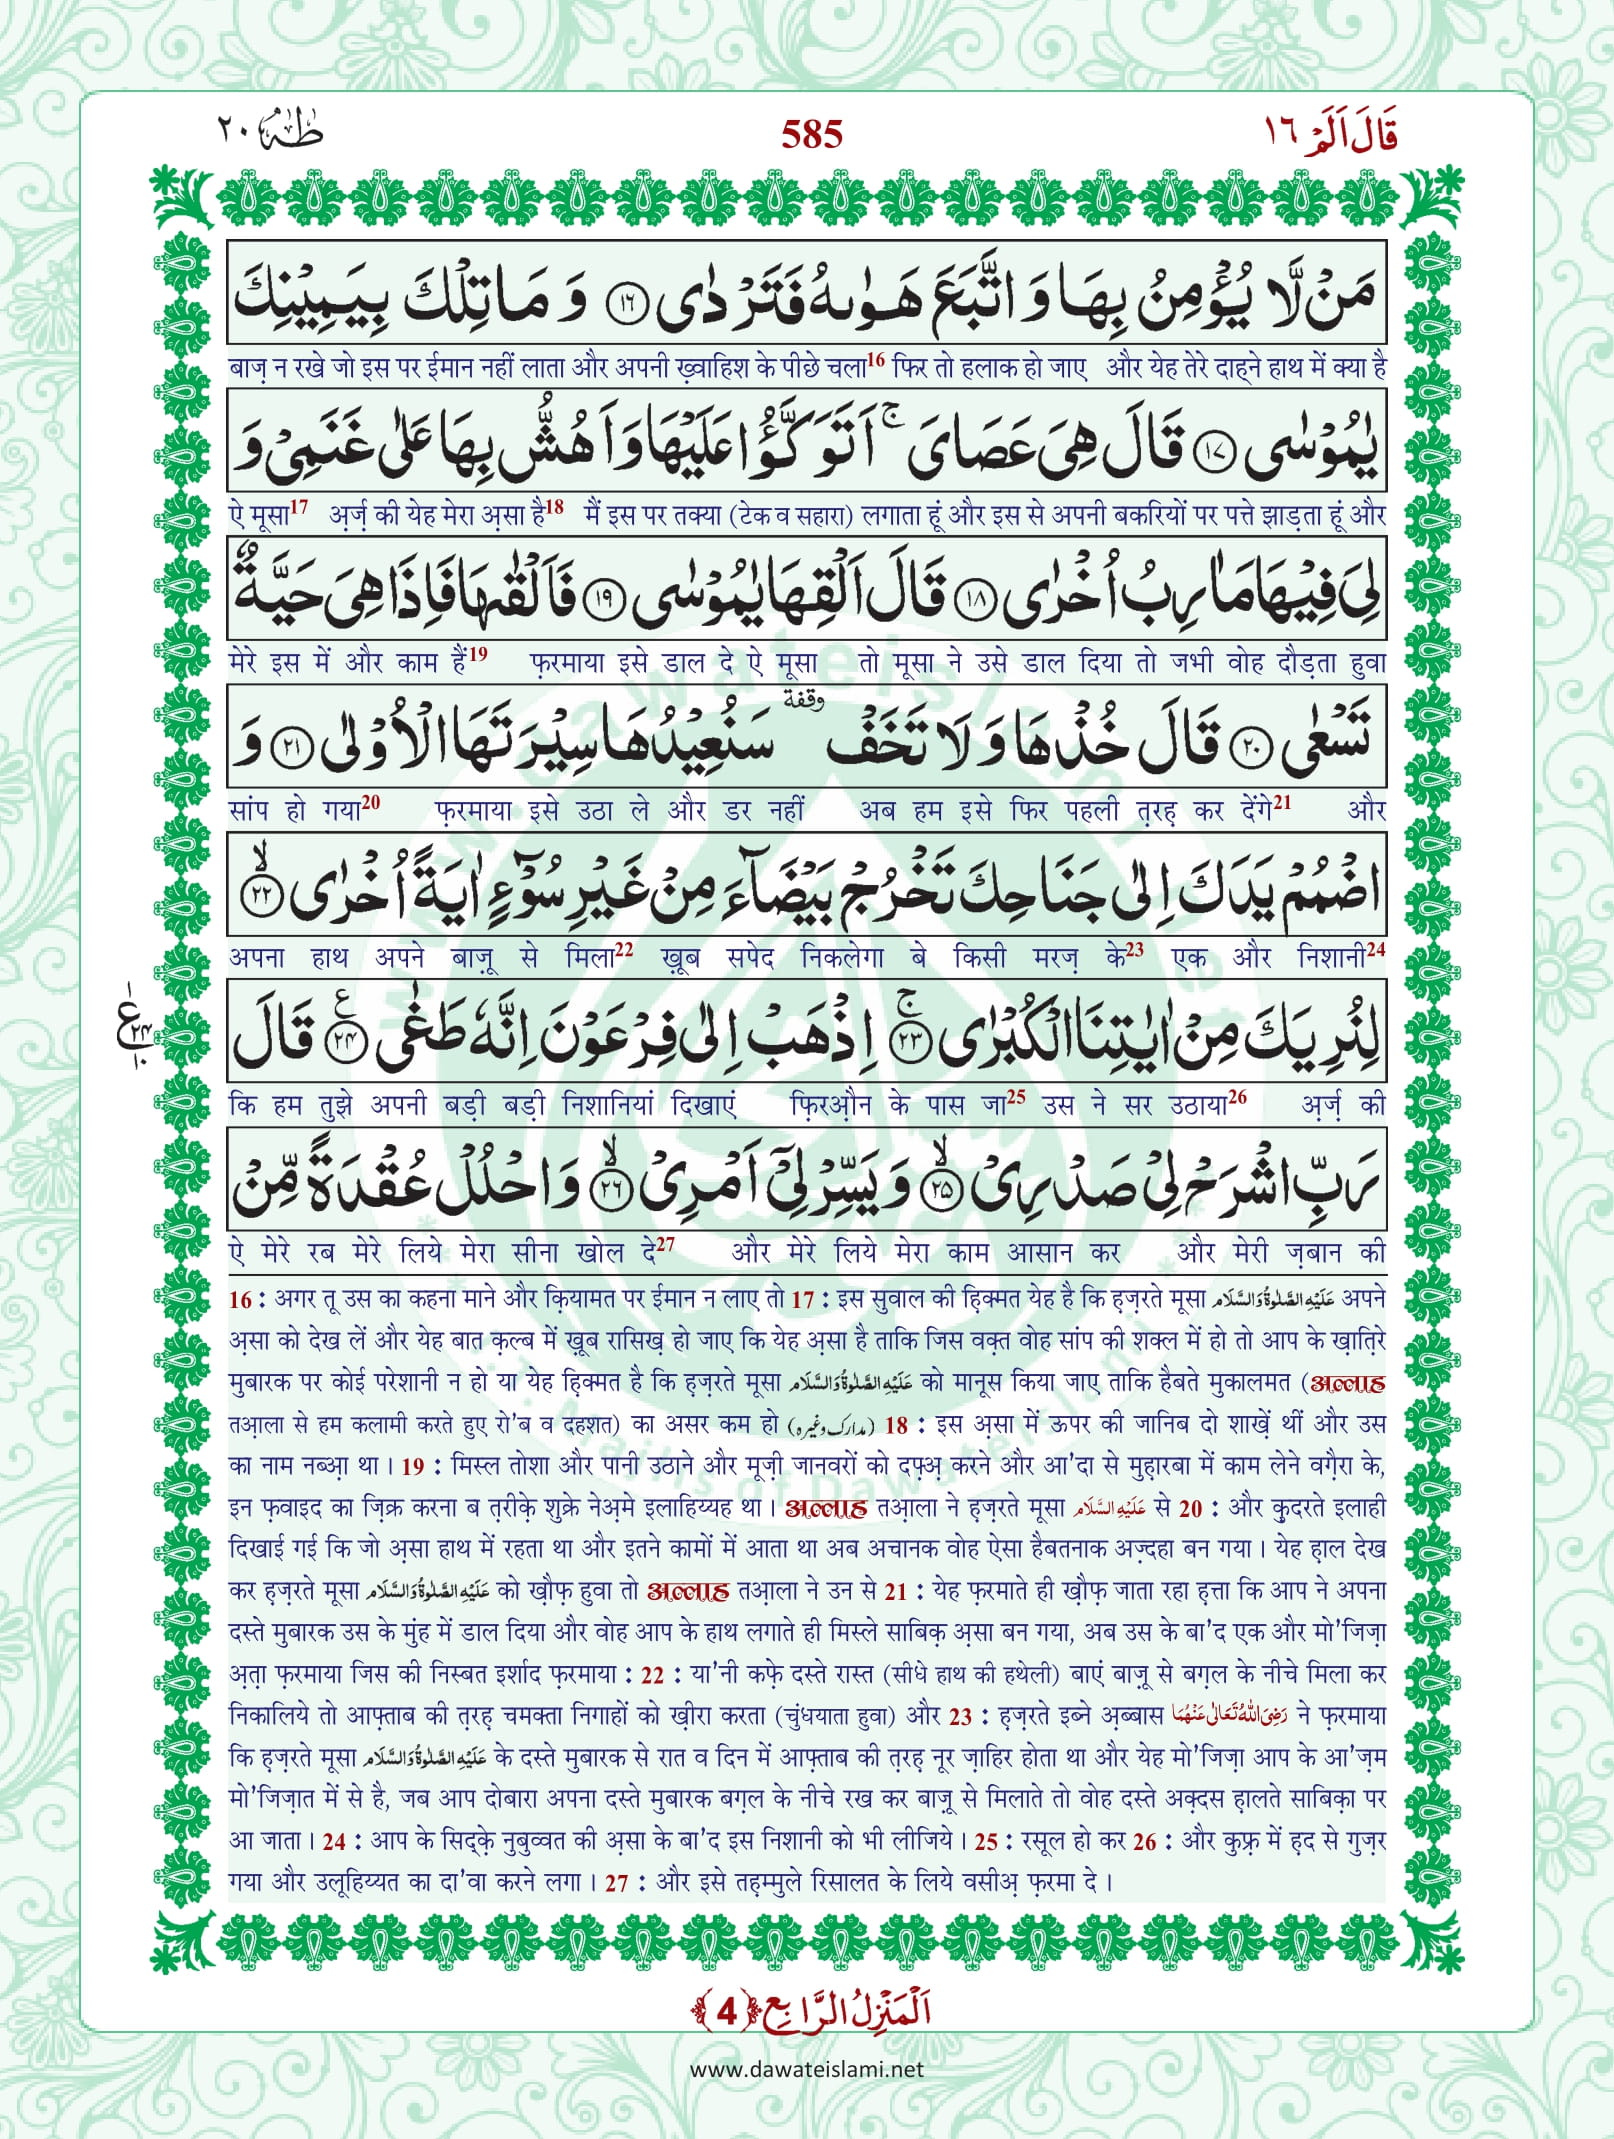 قَالَ اَلَمْ ١٦
585
طٰهٰ ٢٠
مَنْ لَّا یُؤْمِنُ بِهَا وَ اتَّبَعَ هَوٰىهُ فَتَرْدٰى ﴿١٦﴾ وَ مَا تِلْكَ بِیَمِیْنِكَ
बाज़ न रखे जो इस पर ईमान नहीं लाता और अपनी ख़्वाहिश के पीछे चला16 फिर तो हलाक हो जाए और येह तेरे दाह्ने हाथ में क्या है
یٰمُوْسٰى ﴿١٧﴾ قَالَ هِیَ عَصَایَۚ اَتَوَكَّؤُا عَلَیْهَا وَ اَهُشُّ بِهَا عَلٰى غَنَمِیْ وَ
ऐ मूसा17 अ़र्ज़ की येह मेरा अ़सा है18 मैं इस पर तक्या (टेक व सहारा) लगाता हूं और इस से अपनी बकरियों पर पत्ते झाड़ता हूं और
لِیَ فِیْهَا مَاٰرِبُ اُخْرٰى ﴿١٨﴾ قَالَ اَلْقِهَا یٰمُوْسٰى ﴿١٩﴾ فَاَلْقٰىهَا فَاِذَا هِیَ حَیَّةٌ
मेरे इस में और काम हैं19 फ़रमाया इसे डाल दे ऐ मूसा तो मूसा ने उसे डाल दिया तो जभी वोह दौड़ता हुवा
تَسْعٰى ﴿٢٠﴾ قَالَ خُذْهَا وَ لَا تَخَفْ وقفة سَنُعِیْدُهَا سِیْرَتَهَا الْاُوْلٰى ﴿٢١﴾ وَ
सांप हो गया20 फ़रमाया इसे उठा ले और डर नहीं अब हम इसे फिर पहली त़रह़ कर देंगे21 और
اضْمُمْ یَدَكَ اِلٰى جَنَاحِكَ تَخْرُجْ بَیْضَآءَ مِنْ غَیْرِ سُوْٓءٍ اٰیَةً اُخْرٰىۙ ﴿٢٢﴾
अपना हाथ अपने बाज़ू से मिला22 ख़ूब सपेद निकलेगा बे किसी मरज़ के23 एक और निशानी24
لِنُرِیَكَ مِنْ اٰیٰتِنَا الْكُبْرٰىۚ ﴿٢٣﴾ اِذْهَبْ اِلٰى فِرْعَوْنَ اِنَّهٗ طَغٰى ﴿٢٤﴾ع قَالَ
ع
कि हम तुझे अपनी बड़ी बड़ी निशानियां दिखाएं फ़िरऔ़न के पास जा25 उस ने सर उठाया26 अ़र्ज़ की
رَبِّ اشْرَحْ لِیْ صَدْرِیْۙ ﴿٢٥﴾ وَ یَسِّرْ لِیْۤ اَمْرِیْۙ ﴿٢٦﴾ وَ احْلُلْ عُقْدَةً مِّنْ
ऐ मेरे रब मेरे लिये मेरा सीना खोल दे27 और मेरे लिये मेरा काम आसान कर और मेरी ज़बान की
16 : अगर तू उस का कहना माने और क़ियामत पर ईमान न लाए तो 17 : इस सुवाल की ह़िक्मत येह है कि ह़ज़रते मूसा عَلَيْهِ الصَّلٰوةُ وَالسَّلَام अपने
अ़सा को देख लें और येह बात क़ल्ब में ख़ूब रासिख़ हो जाए कि येह अ़सा है ताकि जिस वक़्त वोह सांप की शक्ल में हो तो आप के ख़ात़िरे
मुबारक पर कोई परेशानी न हो या येह ह़िक्मत है कि ह़ज़रते मूसा عَلَيْهِ الصَّلٰوةُ وَالسَّلَام को मानूस किया जाए ताकि हैबते मुकालमत (अल्लाह
तआ़ला से हम कलामी करते हुए रो'ब व दहशत) का असर कम हो (مدارک وغیرہ) 18 : इस अ़सा में ऊपर की जानिब दो शाख़ें थीं और उस
का नाम नब्आ़ था। 19 : मिस्ल तोशा और पानी उठाने और मूज़ी जानवरों को दफ़्अ़ करने और आ'दा से मुह़ारबा में काम लेने वग़ैरा के,
इन फ़वाइद का ज़िक्र करना ब त़रीक़े शुक्रे नेअ़मे इलाहिय्यह था। अल्लाह तआ़ला ने ह़ज़रते मूसा عَلَيْهِ السَّلَام से 20 : और क़ुदरते इलाही
दिखाई गई कि जो अ़सा हाथ में रहता था और इतने कामों में आता था अब अचानक वोह ऐसा हैबतनाक अज़्दहा बन गया। येह ह़ाल देख
कर ह़ज़रते मूसा عَلَيْهِ الصَّلٰوةُ وَالسَّلَام को ख़ौफ़ हुवा तो अल्लाह तआ़ला ने उन से 21 : येह फ़रमाते ही ख़ौफ़ जाता रहा ह़त्ता कि आप ने अपना
दस्ते मुबारक उस के मुंह में डाल दिया और वोह आप के हाथ लगाते ही मिस्ले साबिक़ अ़सा बन गया, अब उस के बा'द एक और मो'जिज़ा
अ़त़ा फ़रमाया जिस की निस्बत इर्शाद फ़रमाया : 22 : या'नी कफ़े दस्ते रास्त (सीधे हाथ की हथेली) बाएं बाज़ू से बग़ल के नीचे मिला कर
निकालिये तो आफ़्ताब की त़रह़ चमक्ता निगाहों को ख़ीरा करता (चुंधयाता हुवा) और 23 : ह़ज़रते इब्ने अ़ब्बास رَضِیَ اللّٰهُ تَعَالٰی عَنْهُمَا ने फ़रमाया
कि ह़ज़रते मूसा عَلَيْهِ الصَّلٰوةُ وَالسَّلَام के दस्ते मुबारक से रात व दिन में आफ़्ताब की त़रह़ नूर ज़ाहिर होता था और येह मो'जिज़ा आप के आ'ज़म
मो'जिज़ात में से है, जब आप दोबारा अपना दस्ते मुबारक बग़ल के नीचे रख कर बाज़ू से मिलाते तो वोह दस्ते अक़्दस ह़ालते साबिक़ा पर
आ जाता। 24 : आप के सिद्क़े नुबुव्वत की अ़सा के बा'द इस निशानी को भी लीजिये। 25 : रसूल हो कर 26 : और कुफ़्र में ह़द से गुज़र
गया और उलूहिय्यत का दा'वा करने लगा। 27 : और इसे तह़म्मुले रिसालत के लिये वसीअ़ फ़रमा दे।
اَلْمَنْزِلُ الرَّابِع ﴿4﴾
www.dawateislami.net